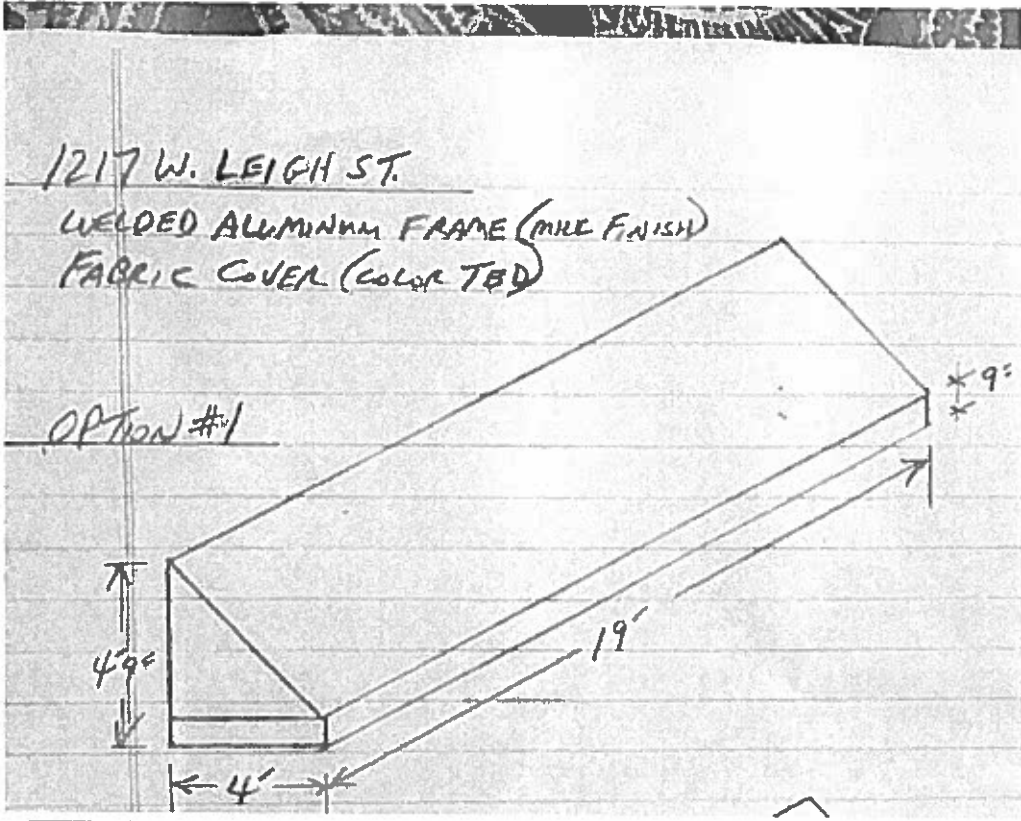 1217 W. LEIGH ST.
WELDED ALUMINUM FRAME (MILL FINISH)
FABRIC COVER (COLOR TBD)
OPTION #1
9"
19'
4'9"
4'